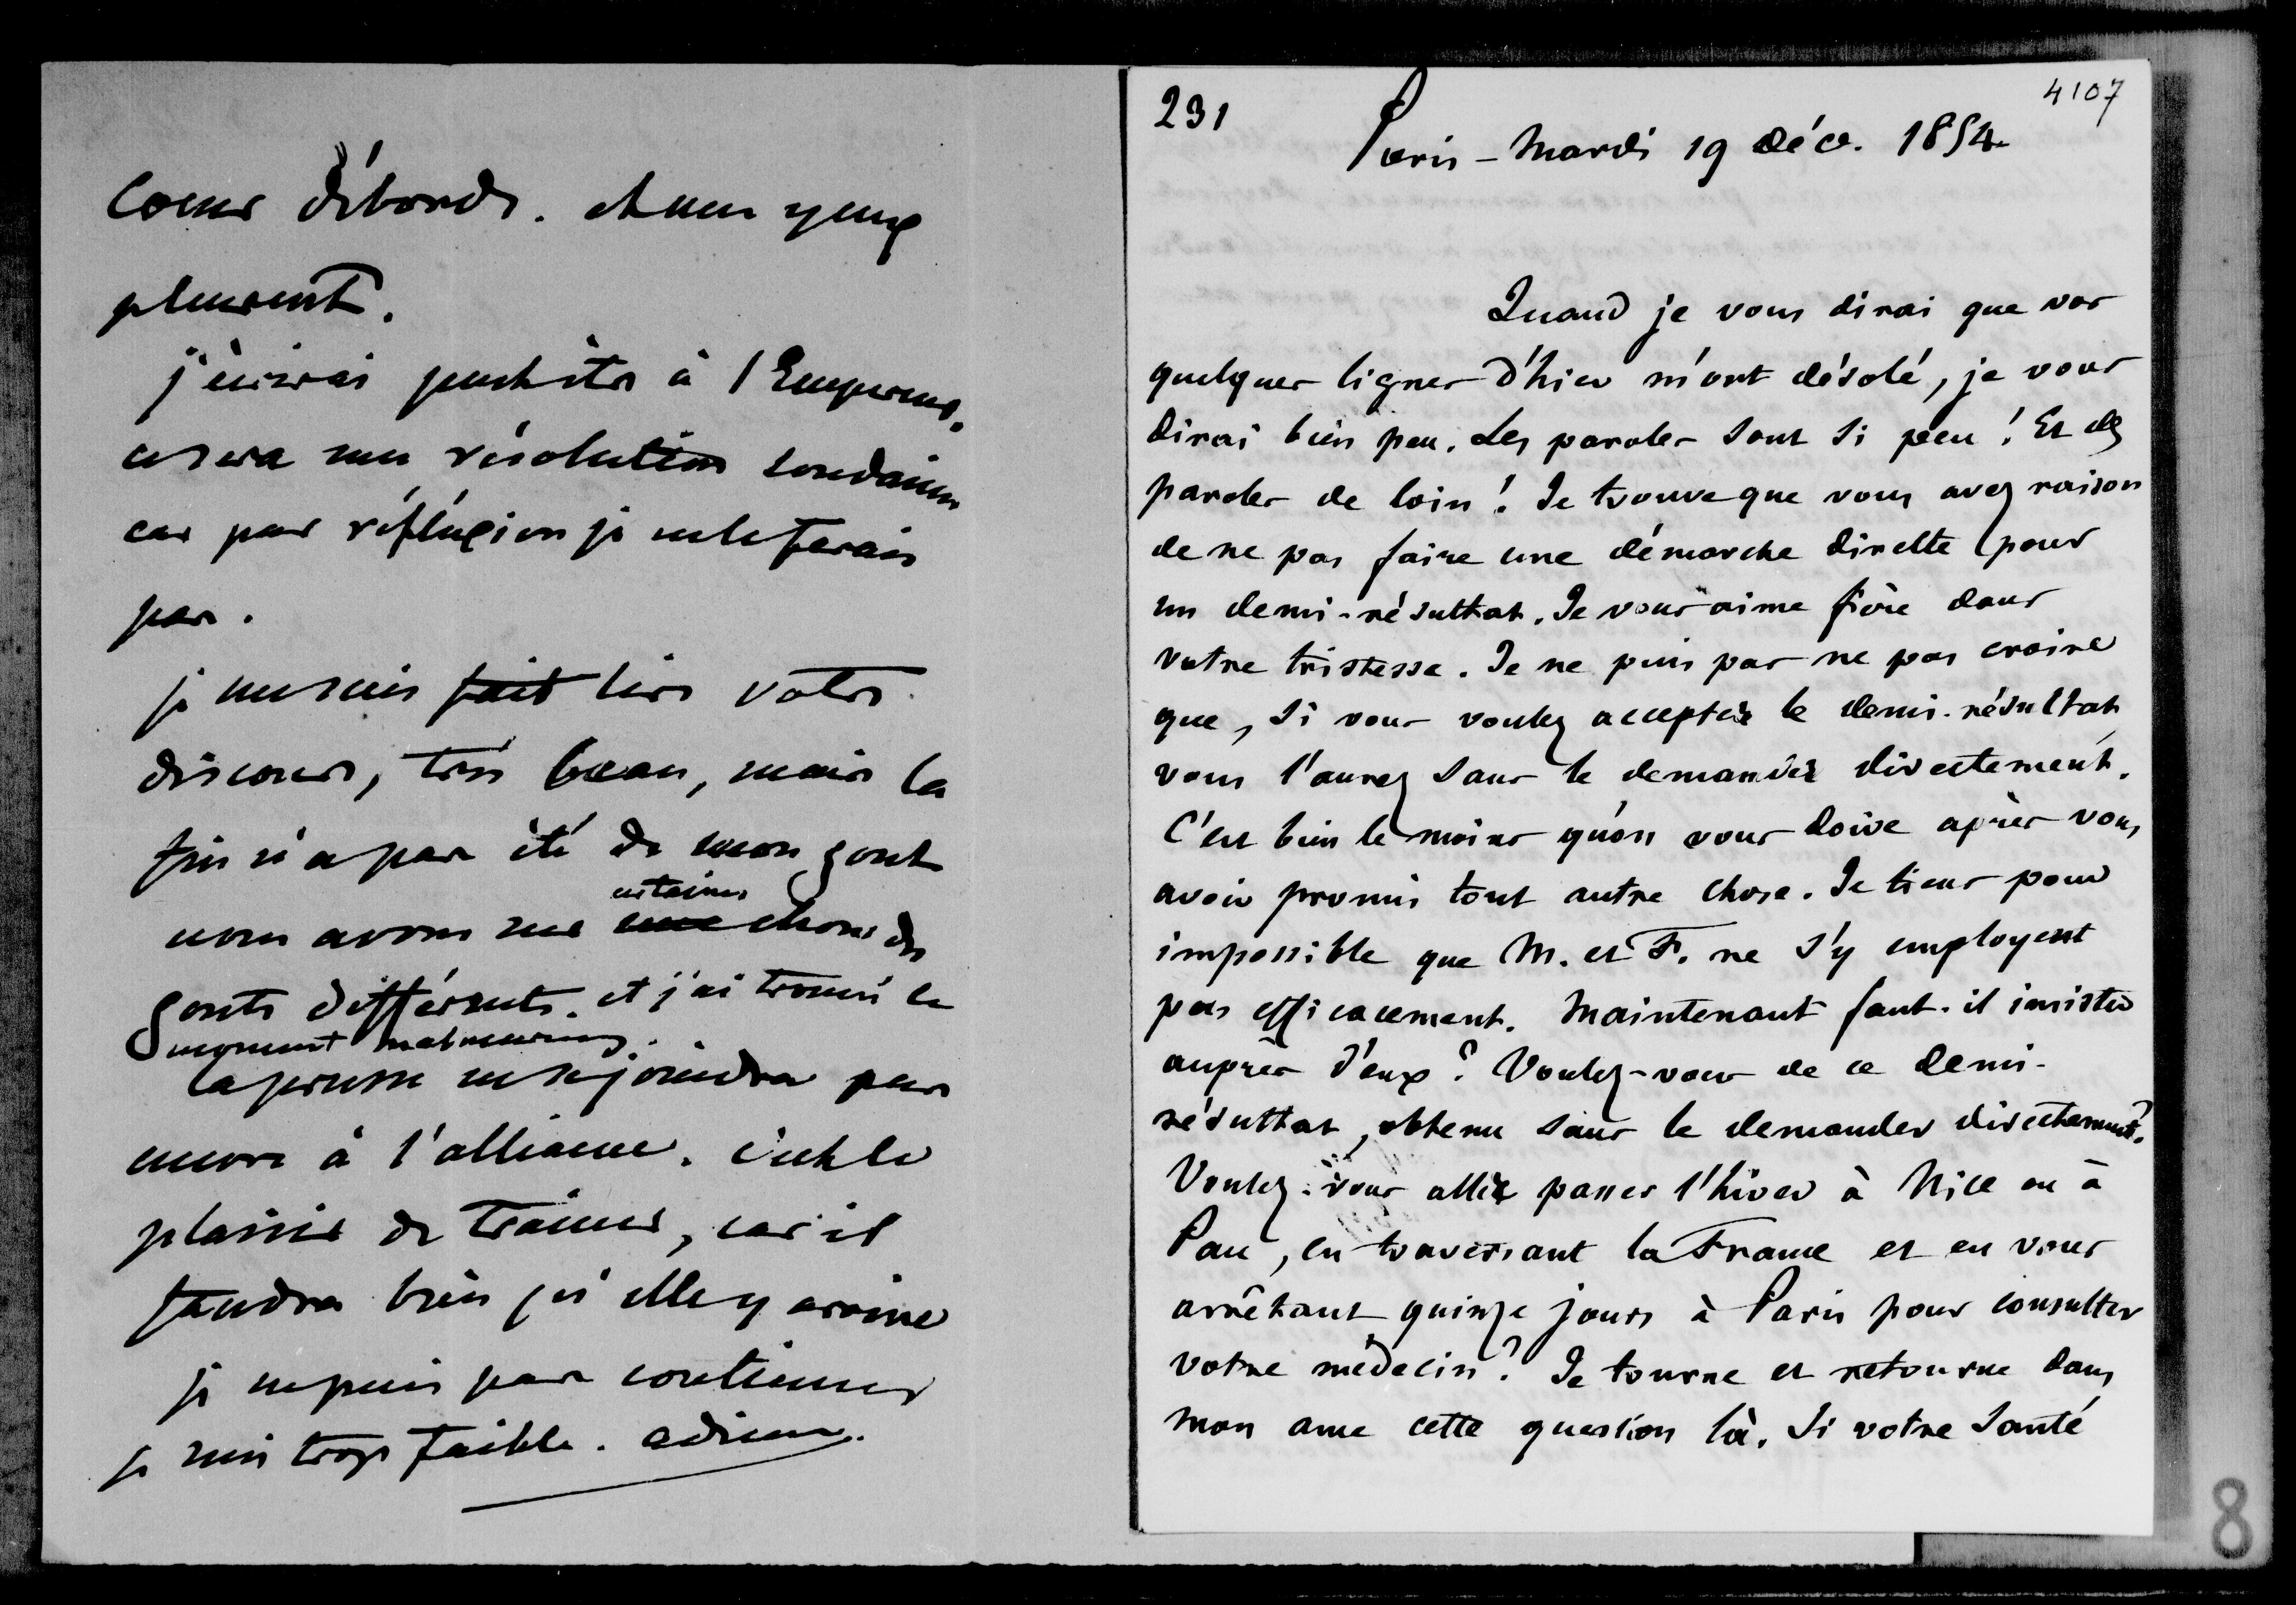 coeur déborde. et mes yeux
pleurent.
j'écrirai peut être à l'Empereur.
ce sera une résolution soudaine
car par réflexion je ne le ferais
pas.
je me suis fait lire votre
discours, très beau, mais la
fin n'a pas été de mon gout
nous avons sur certaines choses des
gouts différents. et j'ai trouvé le
moment malheureux.
la prusse ne se joindra pas
encore à l'alliance. c'est le
plaisir de trainer, car il
faudra bien qu'elle y arrive
je ne puis pas continuer
je suis trop faible. adieu.
231
4107
Paris - Mardi 19 Déce. 1854
Quand je vous dirai que vos
quelques lignes d'hier m'ont désolé, je vous
dirai bien peu. Les paroles sont si peu ! Et des
paroles de loin ! Je trouve que vous avez raison
de ne pas faire une démarche directe pour
un demi-résultat. Je vous aime fière dans
votre tristesse. Je ne puis pas ne pas croire
que, si vous voulez accepter le demi-résultat,
vous l'aurez sans le demander directement.
C'est bien le moins qu'on vous doive après vous
avoir promis tout autre chose. Je tiens pour
impossible que M. et F. ne s'y employent
pas efficacement. Maintenant faut-il insister
auprès d'eux ? Voulez-vous de ce demi-
résultat, obtenu sans le demander directement ?
Voulez-vous aller passer l'hiver à Nice ou à
Pau, en traversant la France et en vous
arrêtant quinze jours à Paris pour consulter
votre médecin ? Je tourne et retourne dans
mon ame cette question là. Si votre santé
8